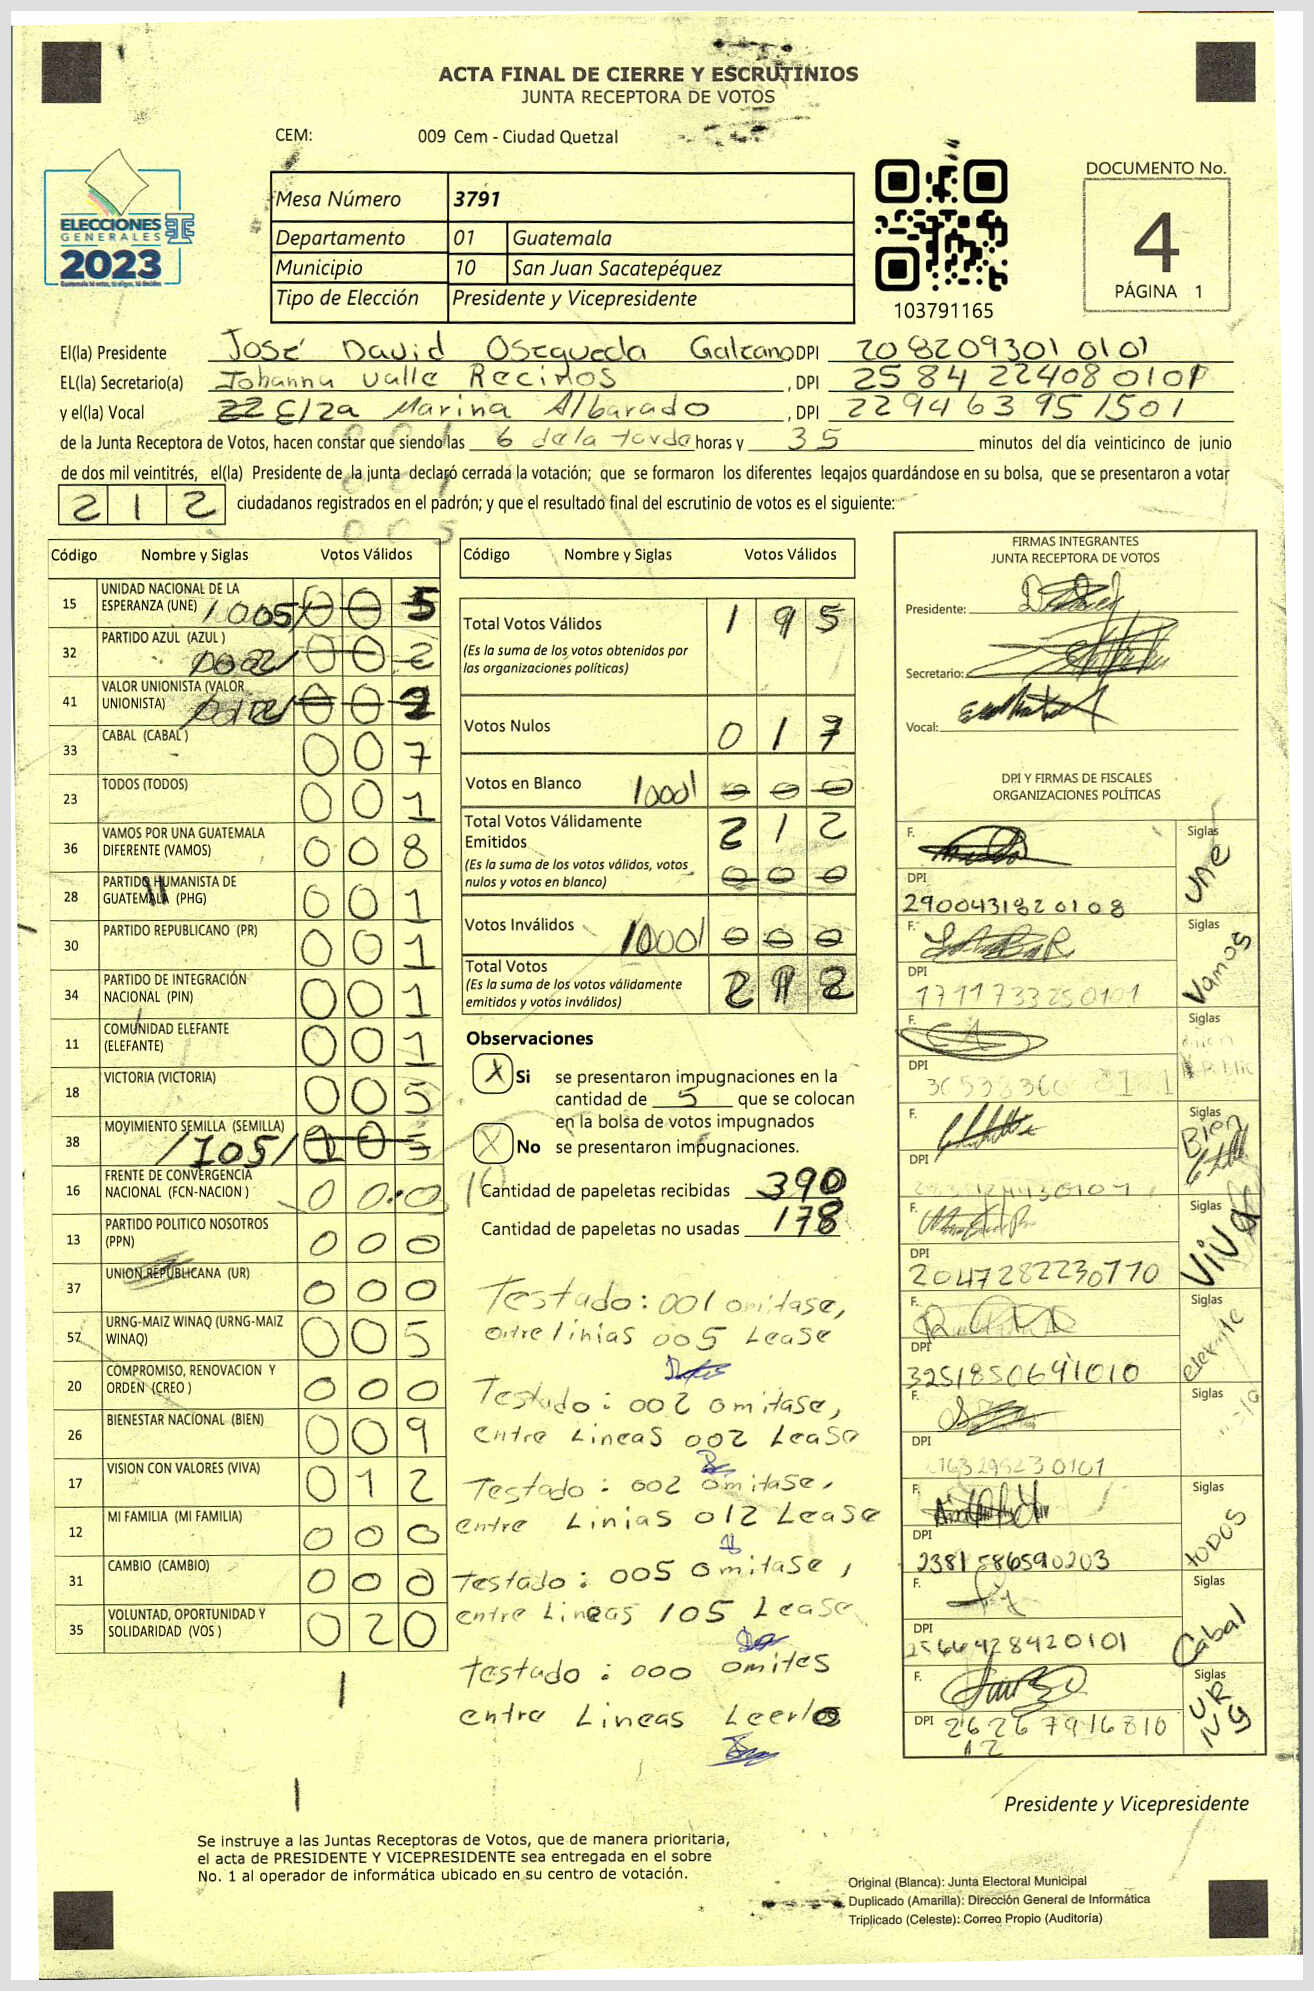 ACTA FINAL DE CIERRE Y ESCRUTINIOS
JUNTA RECEPTORA DE VOTOS
CEM: 009 Cem - Ciudad Quetzal
ELECCIONES
GENERALES
2023
Mesa Número 3791
Departamento 01 Guatemala
Municipio 10 San Juan Sacatepéquez
Tipo de Elección Presidente y Vicepresidente
103791165
DOCUMENTO No.
4
PÁGINA 1
El(la) Presidente José David Osequeda Galeano DPI 208209301 0101
EL(la) Secretario(a) Johanna Valle Recinos , DPI 2584 22408 0101
y el(la) Vocal Elza Marina Albarado , DPI 229463951501
de la Junta Receptora de Votos, hacen constar que siendo las 6 de la tarde horas y 35 minutos del día veinticinco de junio
de dos mil veintitrés, el(la) Presidente de la junta declaró cerrada la votación; que se formaron los diferentes legajos guardándose en su bolsa, que se presentaron a votar
212 ciudadanos registrados en el padrón; y que el resultado final del escrutinio de votos es el siguiente:
Código Nombre y Siglas Votos Válidos
15 UNIDAD NACIONAL DE LA ESPERANZA (UNE) /005/ 005
32 PARTIDO AZUL (AZUL) /002/ 002
41 VALOR UNIONISTA (VALOR UNIONISTA) 002
33 CABAL (CABAL) 007
23 TODOS (TODOS) 001
36 VAMOS POR UNA GUATEMALA DIFERENTE (VAMOS) 008
28 PARTIDO HUMANISTA DE GUATEMALA (PHG) 001
30 PARTIDO REPUBLICANO (PR) 001
34 PARTIDO DE INTEGRACIÓN NACIONAL (PIN) 001
11 COMUNIDAD ELEFANTE (ELEFANTE) 001
18 VICTORIA (VICTORIA) 005
38 MOVIMIENTO SEMILLA (SEMILLA) /105/ 005
16 FRENTE DE CONVERGENCIA NACIONAL (FCN-NACION) 000
13 PARTIDO POLITICO NOSOTROS (PPN) 000
37 UNION REPUBLICANA (UR) 000
57 URNG-MAIZ WINAQ (URNG-MAIZ WINAQ) 005
20 COMPROMISO, RENOVACION Y ORDEN (CREO) 000
26 BIENESTAR NACIONAL (BIEN) 009
17 VISION CON VALORES (VIVA) 012
12 MI FAMILIA (MI FAMILIA) 000
31 CAMBIO (CAMBIO) 000
35 VOLUNTAD, OPORTUNIDAD Y SOLIDARIDAD (VOS) 020
Código Nombre y Siglas Votos Válidos
Total Votos Válidos 195
(Es la suma de los votos obtenidos por
las organizaciones políticas)
Votos Nulos 017
Votos en Blanco /000/ 000
Total Votos Válidamente
Emitidos 212
(Es la suma de los votos válidos, votos
nulos y votos en blanco) 000
Votos Inválidos /000/ 000
Total Votos
(Es la suma de los votos válidamente
emitidos y votos inválidos) 212
Observaciones
X Si se presentaron impugnaciones en la
cantidad de 5 que se colocan
en la bolsa de votos impugnados
X No se presentaron impugnaciones.
Cantidad de papeletas recibidas 390
Cantidad de papeletas no usadas 178
Testado: 001 omitase,
entre linias 005 Lease
Testado: 002 omitase,
entre Lineas 002 Lease
Testado: 002 omitase,
entre Linias 012 Lease
Testado: 005 omitase,
entre Lineas 105 Lease
Testado: 000 omites
entre Lineas Leerlo
FIRMAS INTEGRANTES
JUNTA RECEPTORA DE VOTOS
Presidente:
Secretario:
Vocal:
DPI Y FIRMAS DE FISCALES
ORGANIZACIONES POLÍTICAS
F. Siglas Une
DPI 2900431820108
F. Siglas Vamos
DPI 1711733250101
F. Siglas
DPI
F. Siglas Bien
DPI
F. Siglas VIVA
DPI 2047282230110
F. Siglas elefante
DPI 3251850691010
F. Siglas
DPI
F. Siglas TODOS
DPI 2381586590203
F. Siglas Cabal
DPI 2566428420101
F. Siglas URNG
DPI 2626791681012
Presidente y Vicepresidente
Se instruye a las Juntas Receptoras de Votos, que de manera prioritaria,
el acta de PRESIDENTE Y VICEPRESIDENTE sea entregada en el sobre
No. 1 al operador de informática ubicado en su centro de votación.
Original (Blanca): Junta Electoral Municipal
Duplicado (Amarilla): Dirección General de Informática
Triplicado (Celeste): Correo Propio (Auditoría)